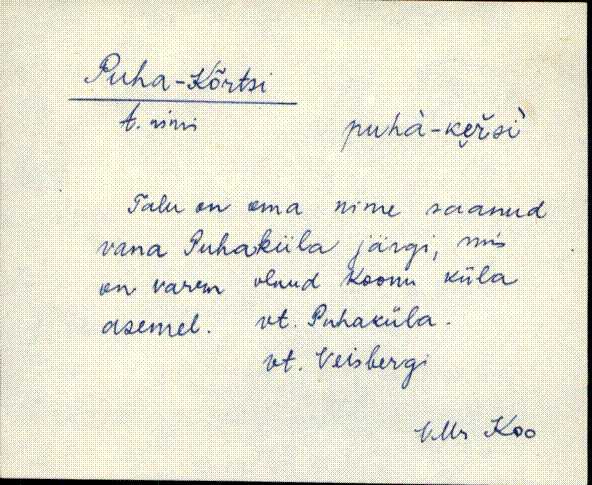 Puha-Kõrtsi
t. nimi
puhà-kę̮řsì
Talu on oma nime saanud
vana Puhaküla järgi, mis
on varem olnud Koonu küla
asemel. vt. Puhaküla.
vt. Veisbergi
VMr Koo